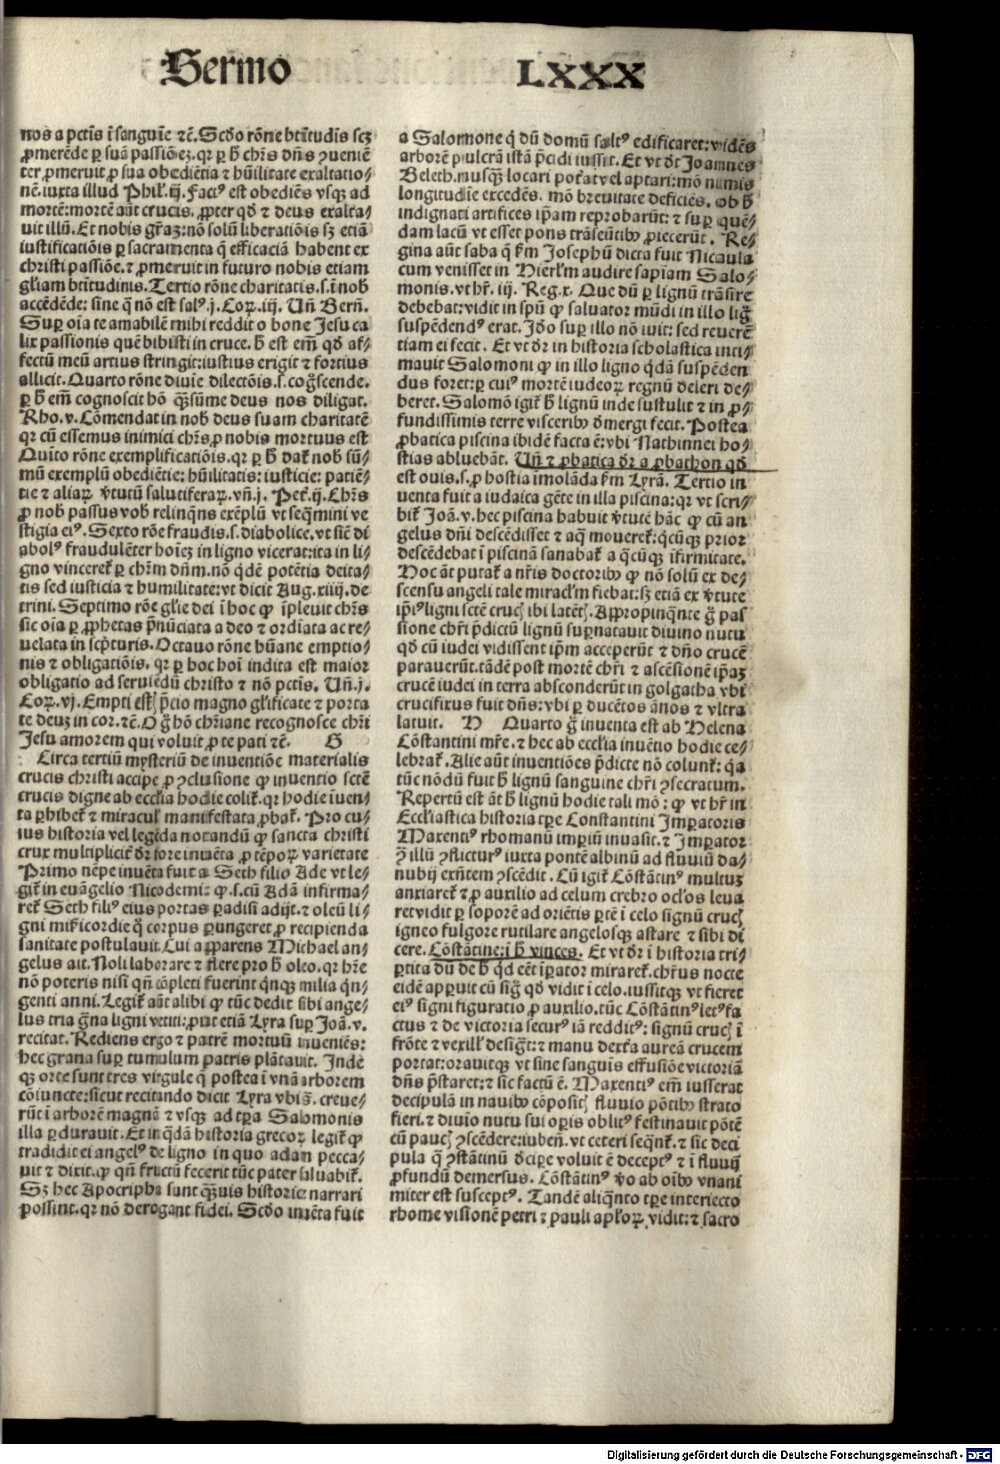 Sermo LXXX
nos a pctīs ī sanguīe ⁊c̄. Scd̓o rōne btītudīs scꝫ
ꝓmerēde ꝑ suā passiōeꝫ. qꝛ ꝑ h̄ chr̄s dn̄s ꝯueniē
ter ꝓmeruit ꝓ sua obediētia ⁊ hūilitate exaltatio⸗
nē. iuxta illud Phil̓. ij. Fact⁹ est obediēs vsqꝫ ad
mortē: mortē aūt crucis. ꝓpter qd̓ ⁊ deus exalta⸗
uit illū. Et nobis gr̄aꝫ: nō solū liberatiōis sꝫ etiā
iustificatiōis ꝑ sacramenta q̄ efficaciā habent ex
christi passiōe. ⁊ ꝓmeruit in futuro nobis etiam
gl̓iam btītudinis. Tertio rōne charitatis. s. ī nob̓
accēdēde: sine q̄ nō est sal⁹. j. Coꝝ. iij. Un̄ Bern̄.
Suꝑ oīa te amabilē mihi reddit o bone Jesu ca
lix passionis quē bibisti in cruce. h̄ est em̄ qd̓ af⸗
fectū meū artius stringit: iustius erigit ⁊ fortius
allicit. Quarto rōne diuīe dilectōis. s. cog̓scende.
ꝑ h̄ em̄ cognoscit hō q̄ꝫsūme deus nos diligat.
Rho. v. Cōmendat in nob̓ deus suam charitatē
qꝛ cū essemus inimici chr̄s ꝓ nobis mortuus est
Quīto rōne exemplificatiōis. qꝛ ꝑ h̄ dat̓ nob̓ sū⸗
mū exemplū obediētie: hūilitatis: iusticie: patiē⸗
tie ⁊ aliaꝝ v̓tutū salutiferaꝝ. vn̄. j. Pet̓. ij. Chr̄s
ꝓ nob̓ passus vob̓ relinq̄ns exēplū vt seq̄mini ve
stigia ei⁹. Sexto rōe fraudis. s. diabolice. vt sic̄ di
abol⁹ fraudulēter hoīeꝫ in ligno vicerat: ita in li⸗
gno vinceret̓ ꝑ chr̄m dn̄m. nō q̄dē potētia deita⸗
tis sed iusticia ⁊ humilitate: vt dicit Aug. xiiij. de
trini. Septimo rōe gl̓ie dei ī hoc ꝙ īpleuit chr̄s
sic oīa ꝑ ꝓphetas p̄nūciata a deo ⁊ ordīata ac re⸗
uelata in scp̄turis. Octauo rōne hūane emptio⸗
nis ⁊ obligatiōis. qꝛ ꝑ hoc hoī indita est maior
obligatio ad seruiēdū christo ⁊ nō pctīs. Un̄. j.
Coꝝ. vj. Empti estꝭ p̄cio magno gl̓ificate ⁊ porta
te deuꝫ in cor. ⁊c̄. O g̓ hō chr̄iane recognosce chr̄i
Jesu amorem qui voluit ꝓ te pati ⁊c̄. G
Circa tertiū mysteriū de inuentiōe materialis
crucis christi accipe ꝓ ꝯclusione ꝙ inuentio sctē
crucis digne ab eccl̓ia hodie colit̓. qꝛ hodie īuen⸗
ta ꝑhibet̓ ⁊ miracul̓ manifestata ꝓbat̓. Pro cu⸗
ius historia vel legēda notandū ꝙ sancta christi
crux multiplicit̓ dr̄ fore inuēta ꝓ tēpoꝝ varietate
Primo nēpe inuēta fuit a Seth filio Ade vt le⸗
git̓ in euāgelio Nicodemi: ꝙ. s. cū Adā infirma⸗
ret̓ Seth fili⁹ eius portas ꝑadisi adijt. ⁊ oleū li⸗
gni mi̓cordie q̓ corpus ꝑungeret ꝓ recipienda
sanitate postulauit. Cui apparens Michael an⸗
gelus ait. Noli laborare ⁊ flere pro h̄ oleo. qꝛ hr̄e
nō poteris nisi qn̄ cōpleti fuerint q̄nqꝫ milia q̄n⸗
genti anni. Legit̓ aūt alibi ꝙ tūc dedit sibi ange⸗
lus tria g̓na ligni vetiti: ꝓut etiā Lyra suꝑ Joā. v.
recitat. Rediens ergo ⁊ patrē mortuū inueniēs:
hec grana suꝑ tumulum patris plātauit. Inde
qꝫ orte sunt tres virgule q̄ postea ī vnā arborem
cōiuncte: sicut recitando dicit Lyra vbi s̄. creue⸗
rūt ī arborē magnā ⁊ vsqꝫ ad tꝑa Salomonis
illa ꝑdurauit. Et in q̄dā historia grecoꝝ legit̓ ꝙ
tradidit ei angel⁹ de ligno in quo adam pecca⸗
uit ⁊ dixit. ꝙ qn̄ fructū fecerit tūc pater saluabit̓.
Sꝫ hec Apocripha sunt q̄ꝫuis historice narrari
possint. qꝛ nō derogant fidei. Scd̓o inuēta fuit
a Salomone q̓ dū domū salt⁹ edificaret: vidēs
arborē pulcrā istā p̄cidi iussit. Et vt dt̓ Joannes
Beleth. nusqꝫ locari pot̓at vel aptari: mō nimis
longitudīe excedēs. mō breuitate deficiēs. ob h̄
indignati artifices ip̄am reprobarūt: ⁊ suꝑ quē⸗
dam lacū vt esset pons trāseūtibꝰ ꝓiecerūt. Re⸗
gina aūt saba q̄ ẜm Josephū dicta fuit Nicaula
cum venisset in Hierl̓m audire sapiam Salo⸗
monis. vt hr̄. iij. Reg. x. Que dū ꝑ lignū trāsire
debebat: vidit in spū ꝙ saluator mūdi in illo lig̓
suspēdend⁹ erat. Jd̓o suꝑ illo nō iuit: sed reuerē
tiam ei fecit. Et vt dr̄ in historia scholastica inti⸗
mauit Salomoni ꝙ in illo ligno q̄dā suspēden
dus foret: ꝑ cui⁹ mortē iudeoꝝ regnū deleri de⸗
beret. Salomō igit̓ h̄ lignū inde sustulit ⁊ in ꝓ⸗
fundissimis terre visceribꝰ d̓mergi fecit. Postea
ꝓbatica piscina ibidē facta ē: vbi Nathinnei ho⸗
stias abluebāt. Un̄ ⁊ ꝓbatica dr̄ a ꝓbathon qd̓
est ouis. s. ꝓ hostia īmolāda ẜm Lyrā. Tertio in
uenta fuit a iudaica gēte in illa piscina: qꝛ vt scri⸗
bit̓ Joā. v. hec piscina habuit v̓tutē hāc ꝙ cū an
gelus dn̄i descēdisset ⁊ aq̄ moueret̓: q̄cūqꝫ prior
descēdebat ī piscinā sanabat̓ a q̄cūqꝫ īfirmitate.
Hoc āt putat̓ a nr̄is doctoribꝰ ꝙ nō solū ex de⸗
scensu angeli tale miracl̓m fiebat: sꝫ etiā ex v̓tute
ip̄i⁹ ligni sctē crucꝭ ibi latētꝭ. Appropinq̄nte g̓ pas
sione chr̄i p̄dictū lignū suꝑnatauit diuino nutu
qd̓ cū iudei vidissent ip̄m acceperūt ⁊ dn̄o crucē
parauerūt. tādē post mortē chr̄i ⁊ ascēsionē ip̄aꝫ
crucē iudei in terra absconderūt in golgatha vbi
crucifixus fuit dn̄s: vbi ꝑ ducētos ānos ⁊ vltra
latuit. H Quarto g̓ inuenta est ab Helena
Cōstantini mr̄e. ⁊ hec ab eccl̓ia inuētio hodie ce⸗
lebrat̓. Alie aūt inuentiōes p̄dicte nō colunt̓: q̄a
tūc nōdū fuit h̄ lignū sanguine chr̄i ꝯsecratum.
Repertū est āt h̄ lignū hodie tali mō: ꝙ vt hr̄ in
Eccl̓iastica historia tꝑe Constantini Imꝑatoris
Maxenti⁹ rhomanū imꝑiū inuasit. ⁊ Imꝑator
ꝯ̄ illū ꝯflictur⁹ iuxta pontē albinū ad fluuiū da⸗
nubij exn̄tem ꝯscēdit. Cū igit̓ Cōstātin⁹ multuꝫ
anxiaret̓ ⁊ ꝓ auxilio ad celum crebro ocl̓os leua
ret vidit ꝑ soporē ad oriētis ꝑtē ī celo signū crucꝭ
igneo fulgore rutilare angelosqꝫ astare ⁊ sibi di
cere. Cōstātine: ī h̄ vinces. Et vt dr̄ ī historia tri⸗
ꝑtita dū de h̄ q̓d eēt īꝑator miraret̓. chr̄us nocte
eidē apparuit cū sig̓ qd̓ vidit ī celo. iussitqꝫ vt fieret
ei⁹ signi figuratio ꝓ auxilio. tūc Cōstātin⁹ let⁹ fa
ctus ⁊ de victoria secur⁹ iā reddit⁹: signū crucꝭ ī
frōte ⁊ vexill̓ desig̓t: ⁊ manu dext̓a aureā crucem
portat: orauitqꝫ vt sine sanguīs effusiōe victoriā
dn̄s p̄staret: ⁊ sic factū ē. Maxenti⁹ em̄ iusserat
decipulā in nauibꝰ cōpositꝭ fluuio pōtibꝰ strato
fieri. ⁊ diuīo nutu sui oꝑis oblit⁹ festinauit pōtē
cū paucꝭ ꝯscēdere: iubēn̄. vt ceteri seq̄nt̓. ⁊ sic deci
pula q̄ ꝯstātinū d̓ciꝑe voluit ē decept⁹ ⁊ ī fluuij
ꝓfundū demersus. Cōstātin⁹ v̓o ab oībꝰ vnani
miter est suscept⁹. Tandē aliq̄nto tꝑe interiecto
rhome visionē petri ⁊ pauli apl̓oꝝ vidit: ⁊ sacro
Digitalisierung gefördert durch die Deutsche Forschungsgemeinschaft - DFG